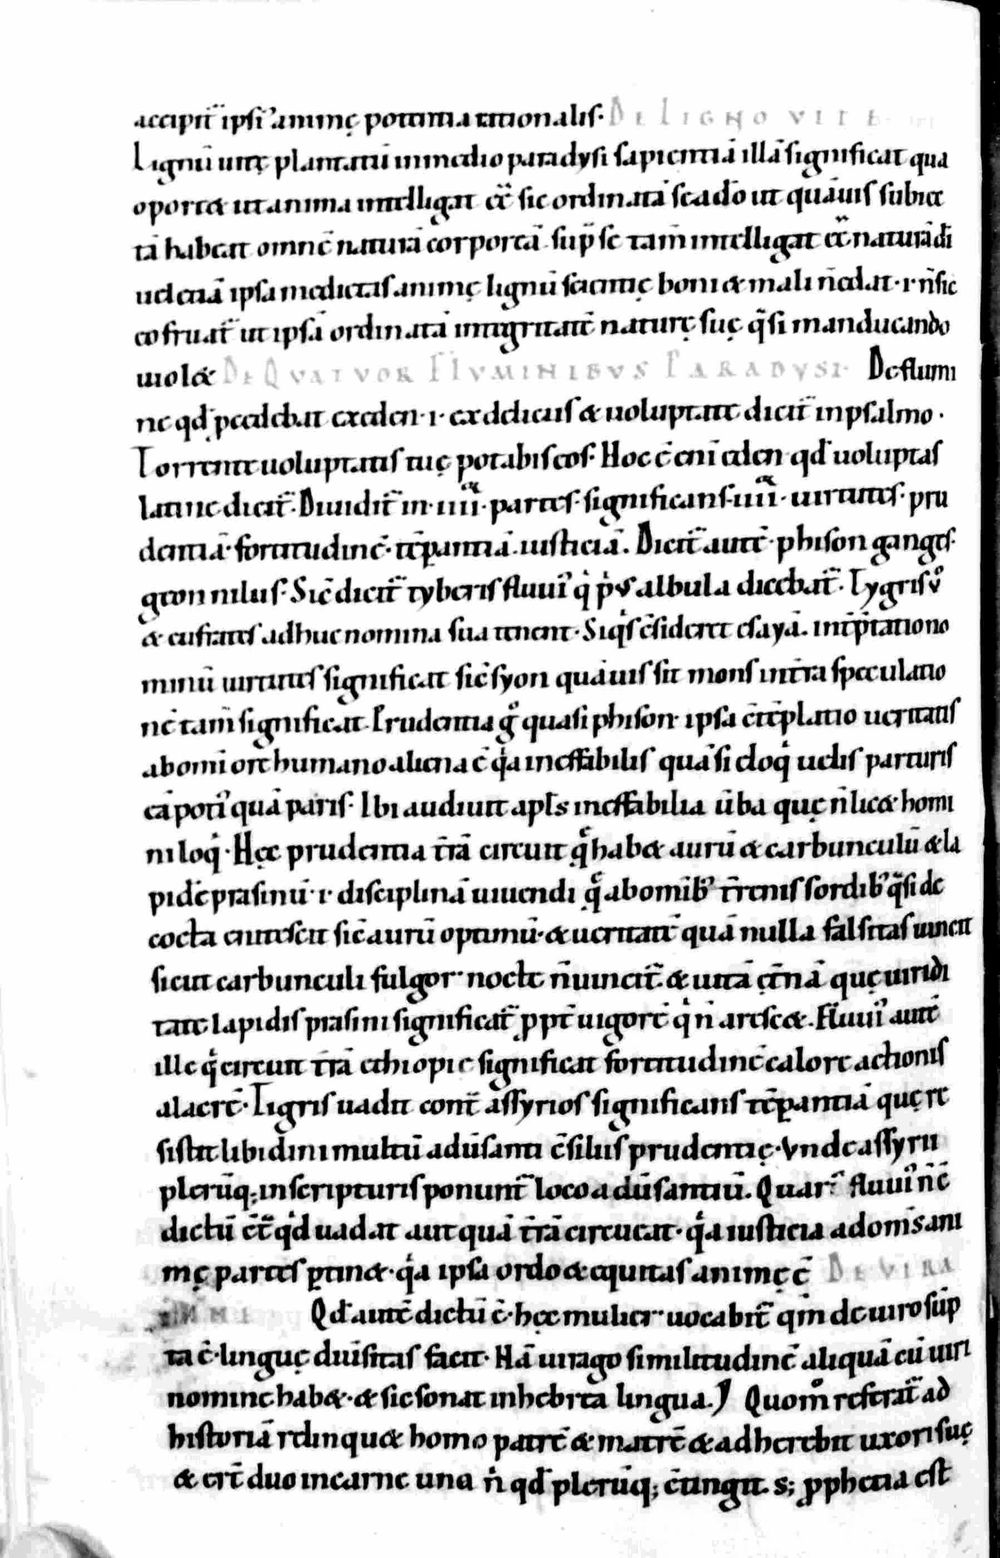 accipit̄ ipsi᾽ animę potentia rationalis. De Ligno vite
Lignū uitę plantatū in medio paradysi sapientiā illā significat qua
oportet ut anima intelligat ēē sic ordinatā se a dō ut quāuis subiec
tā habeat omnē naturā corporeā sup̄ se tam̄ intelligat ēē naturā di
uel etiā ipsa medietas animę lignū scientię boni & mali n̄ edat .i. n̄ sic
eo fruat̄ ut ipsā ordinatā integritatē naturę suę q̄si manducando
uiolet De Qvatvor Flvminibvs Paradysi. De flumi
ne qd̓ pcedebat ex eden .i. ex deliciis & uoluptate dicit̄ in psalmo.
Torrente uoluptatis tuę potabis eos. Hoc ē eni eden qd̓ uoluptas
latine dicit̄. Diuidit̄ in .iiii. partes. significans .iiii. uirtutes. pru
dentiā. fortitudinē. tēꝑantiā. iusticiā. Dicit̄ autē. phison ganges.
geon nilus. Sic̄ dicit̄ tyberis fluui᾽ q̇ p̓us albula dicebat̄. Tygris v̊
& eufrates adhuc nomina sua tenent. Siqs c̄sideret esayā. int̄p̄tatione
minū uirtutes significat sic̄ syon quāuis sit mons in t̄ra speculatio
nē tam̄ significat. Prudentia g̊ quasi phison ipsa c̄tēplatio ueritatis
ab omi ore humano aliena ē q̓a ineffabilis quā si eloq̓ uelis parturis
eā poti᾽ quā paris. Ibi audiuit apl̄s ineffabilia ūba quę n̄ licet homi
ni loq̓. Hęc prudentia t̄rā circuit q̨ habet aurū & carbunculū & la
pidē prasinū .i. disciplinā uiuendi q̨ ab omib᾽ t̄renis sordib᾽ q̄si de
cocta enitescit sic̄ aurū optimū. & ueritatē quā nulla falsitas uincit
sicut carbunculi fulgor nocte n̄ uincit̄. & uitā ęt̄nā quę uiridi
tate lapidis prasini significat̄ ꝓpt̄ uigorē q̓ n̄ arescet. Fluui᾽ autē
ille q̓ circuit t̄rā ethiopię significat fortitudinē calore actionis
alacrē. Tigris uadit cont̄ assyrios significans tēꝑantiā quę re
sistit libidini multū aduersanti c̄siliis prudentię. Vnde assyrii
plerūq; in scripturis ponunt̄ loco aduersantiū. Quart᾽ fluui᾽ n̄ ē
dictū c̄t̄ qd̓ uadat aut quā t̄rā circueat. q̓a iusticia ad om̄s ani
mę partes ꝑtinet. q̓a ipsa ordo & equitas animę ē De vira
gine Qd̓ autē dictū ē. hęc mulier uocabit̄ qm̄ de uiro sūp
ta ē. linguę diuersitas facit. Nā uirago similitudinē aliquā cū uiri
nomine habet. & sic sonat in hebrea lingua. Quom̊ referat̄ ad
historiā relinquet homo patrē & matrē & adherebit uxori suę
& er̄t duo in carne una n̄ qd̓ plerūq; c̄tingit. s; ꝓphetia est